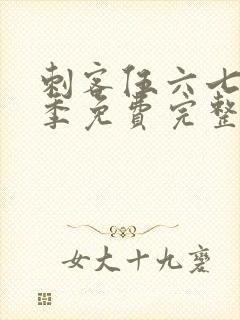 刺客伍六七
季免费完整
女大十九变